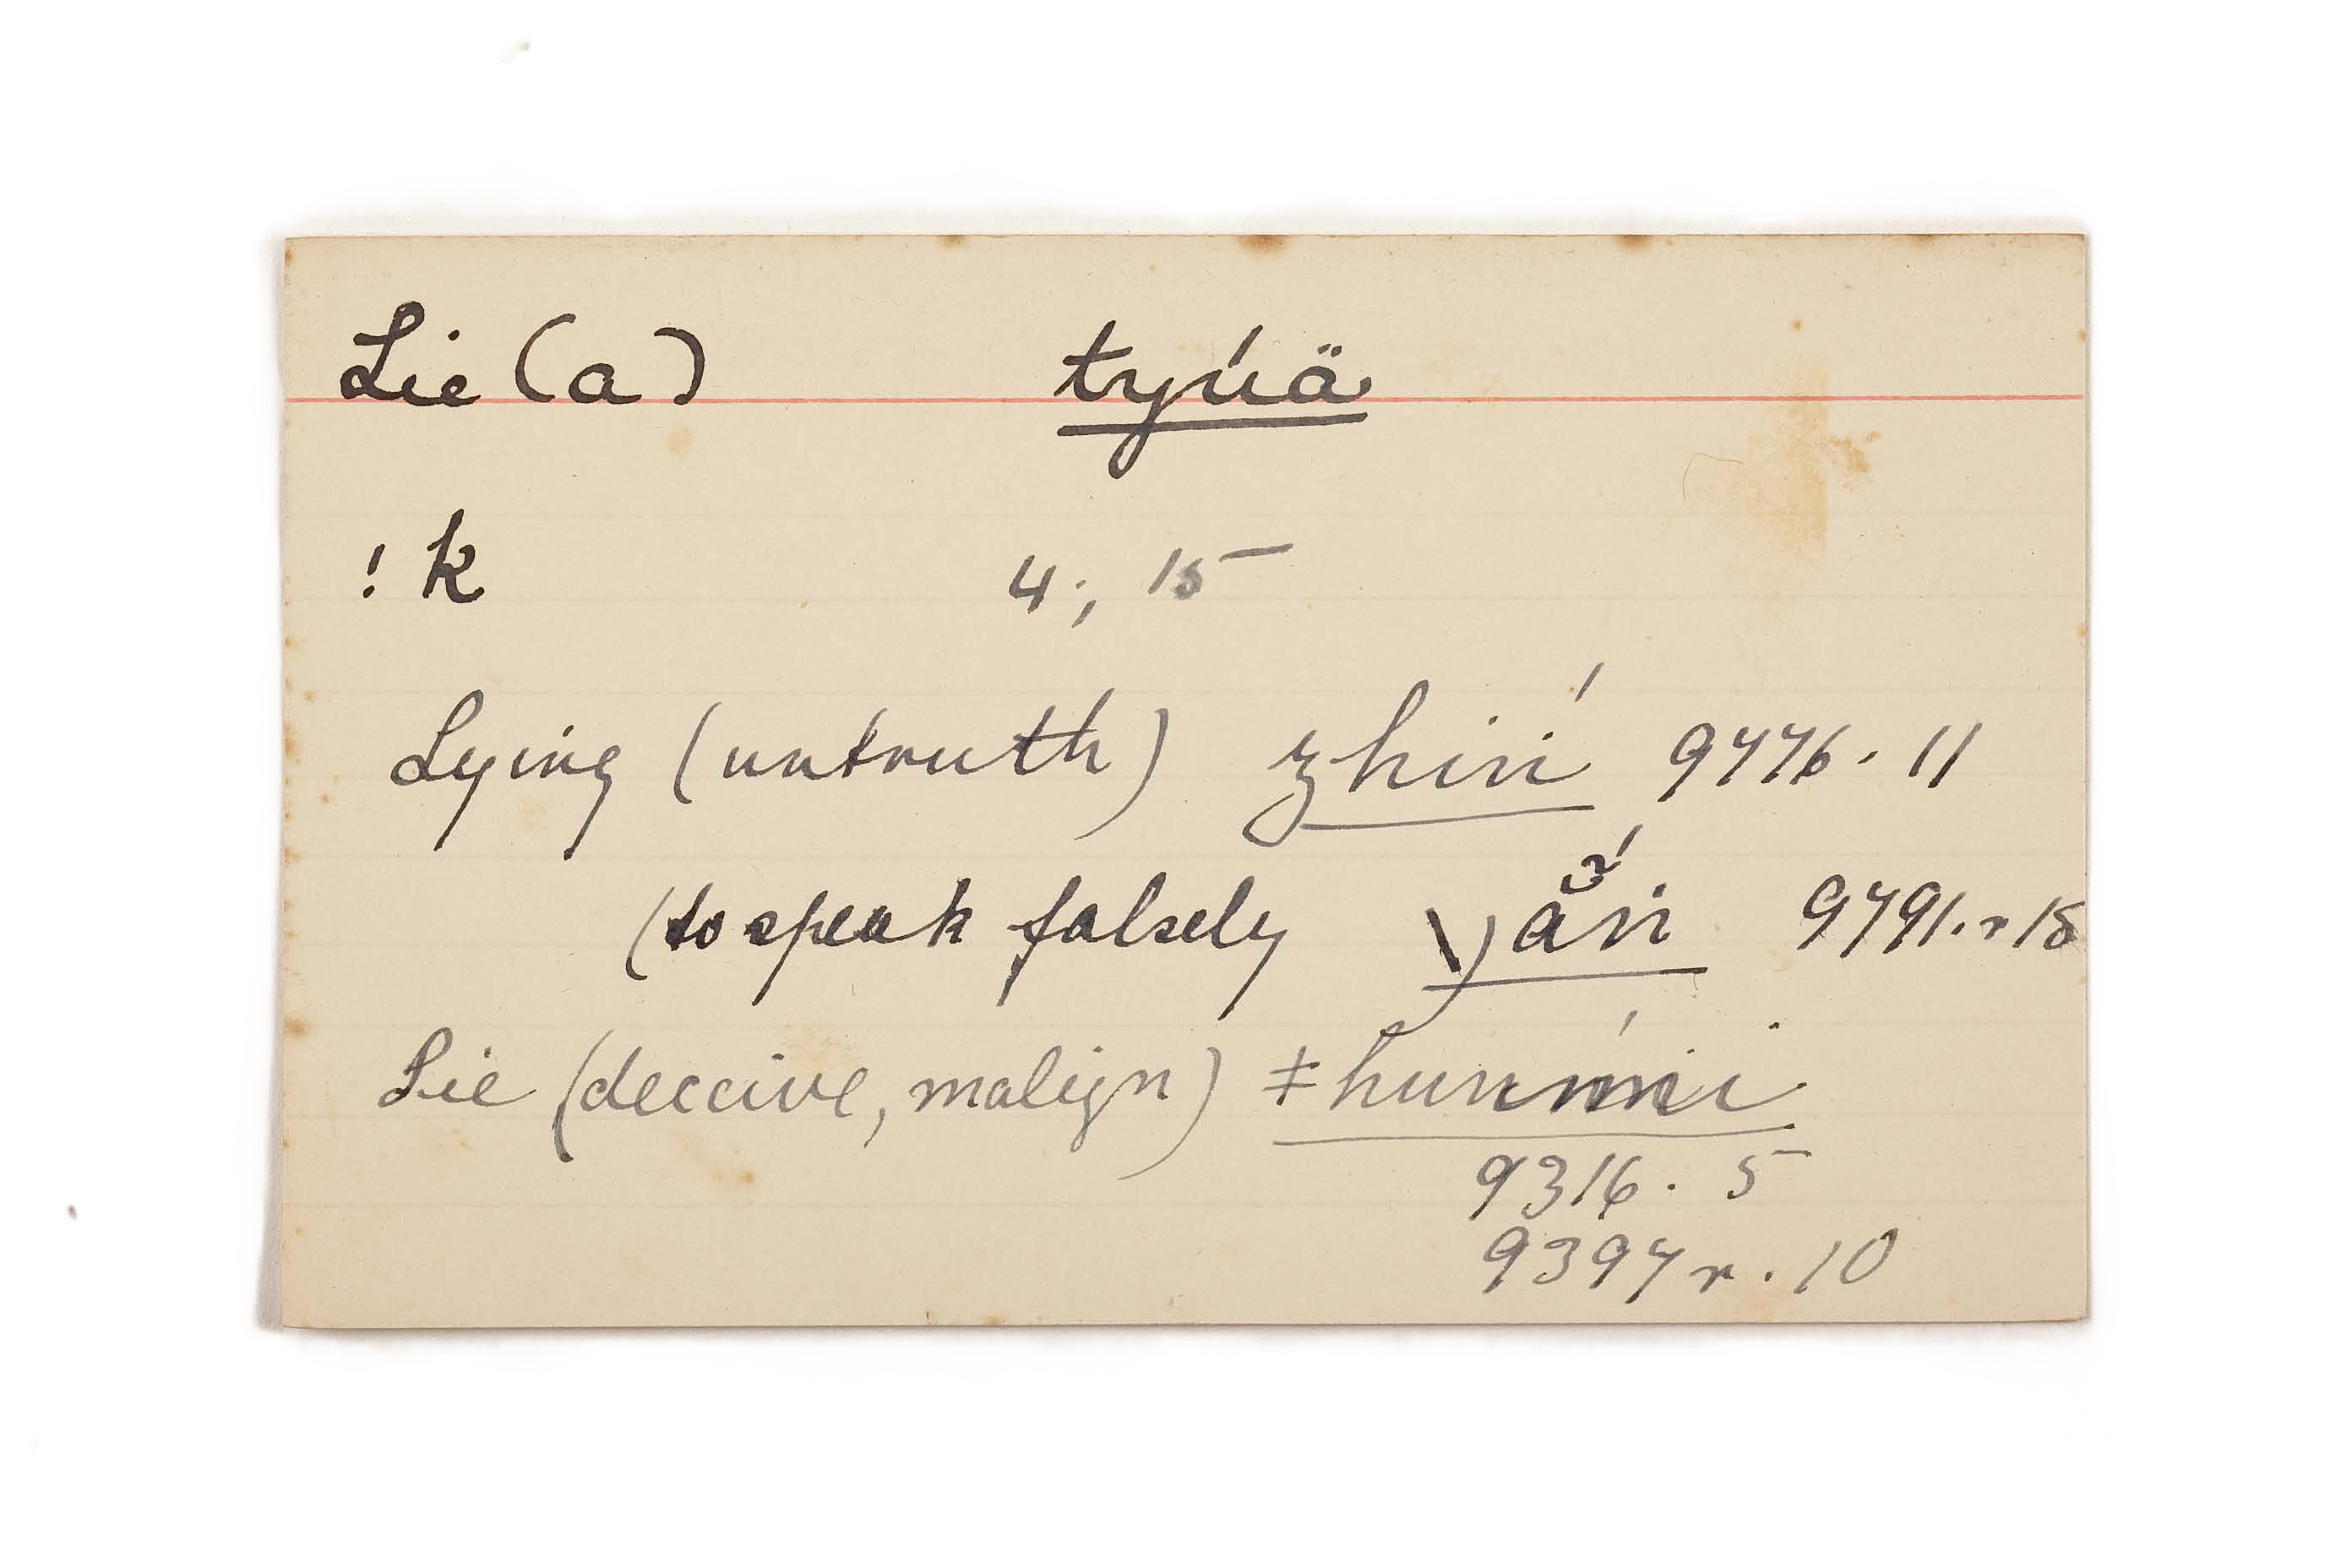 Lie (a) tyúä
! k 4;, 15
Lying (untruth) zhiń 9776. 11
(to speak falsely 9791. r 15
Lie (deceive, malign) ǂhunmi
9316. 5
9397 r. 10